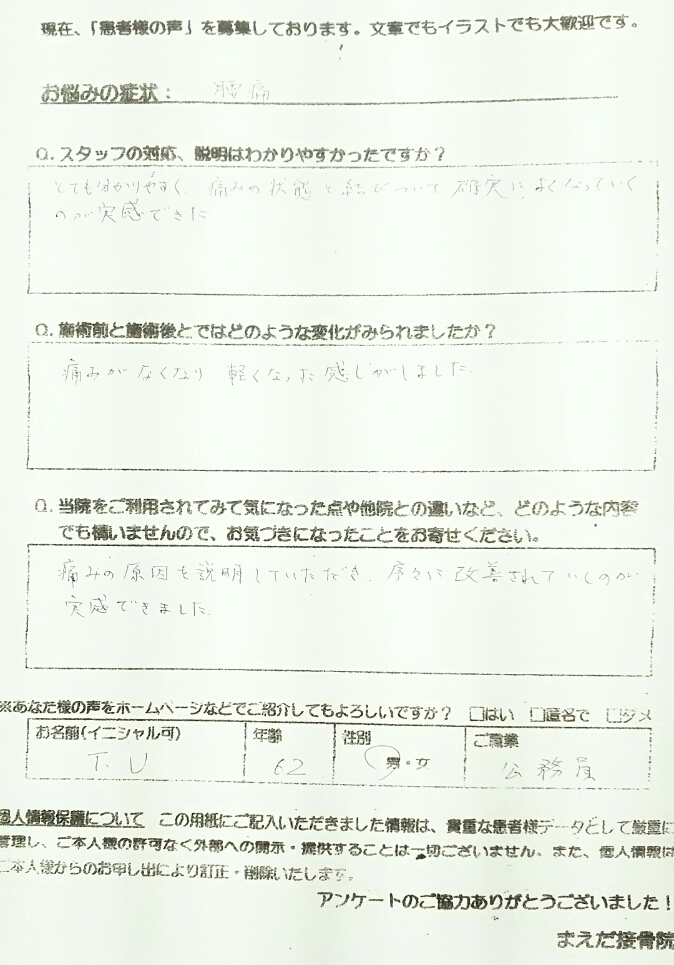 現在、「患者様の声」を募集しております。文章でもイラストでも大歓迎です。
お悩みの症状： 腰痛
Q. スタッフの対応、説明はわかりやすかったですか？
とても分かりやすく、痛みの状態と結びついて確実によくなっていく
のが実感できた
Q. 施術前と施術後とではどのような変化がみられましたか？
痛みがなくなり 軽くなった感じがしました。
Q. 当院をご利用されてみて気になった点や他院との違いなど、どのような内容
でも構いませんので、お気づきになったことをお寄せください。
痛みの原因を説明していただき、序々に改善されていくのが
実感できました。
※あなた様の声をホームページなどでご紹介してもよろしいですか？ □はい □匿名で □ダメ
お名前(イニシャル可) 年齢 性別 ご職業
T. U 62 男・女 公務員
個人情報保護について この用紙にご記入いただきました情報は、貴重な患者様データとして厳重に
管理し、ご本人様の許可なく外部への開示・提供することは一切ございません。また、個人情報は
ご本人様からのお申し出により訂正・削除いたします。
アンケートのご協力ありがとうございました！
まえだ接骨院